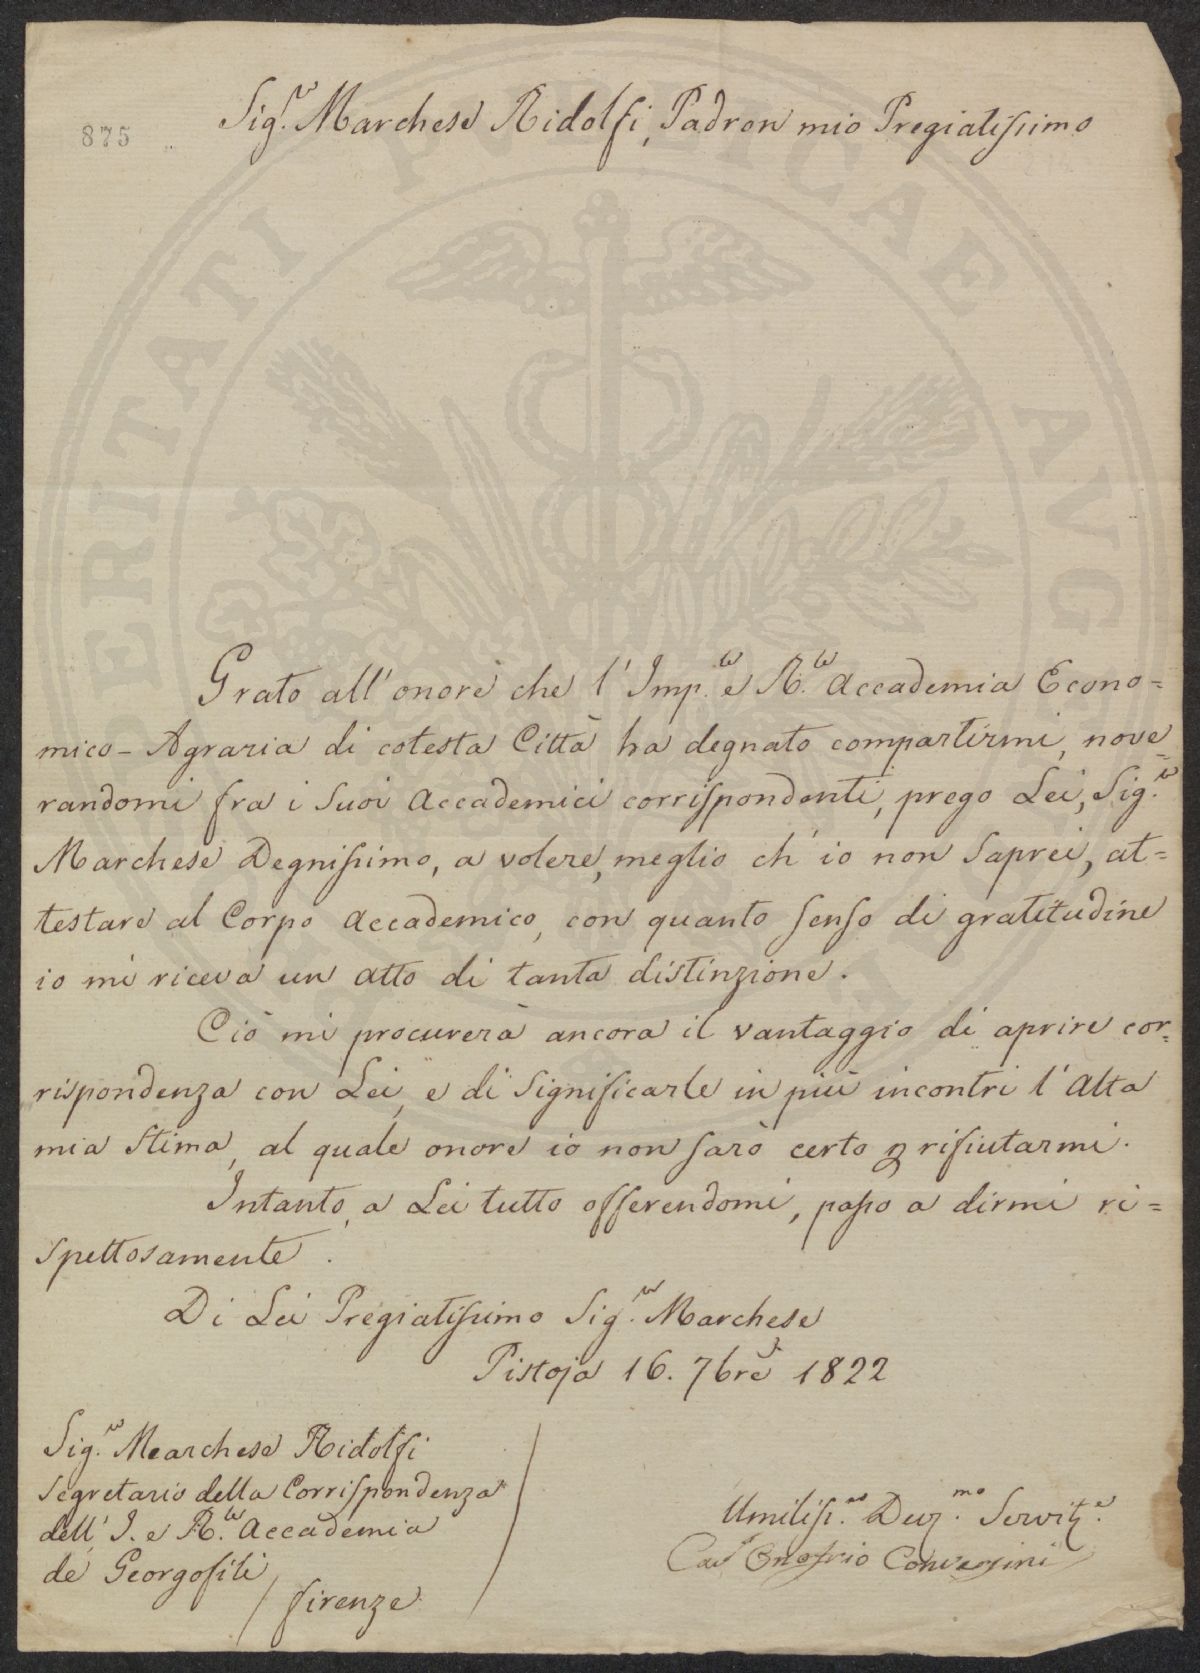 875
Sig.r Marchese Ridolfi, Padron mio Pregiatissimo
Grato all'onore che l'Imp.le e R.le Accademia Econo=
mico-Agraria di cotesta Città ha degnato compartirmi, nove=
randomi fra i Suoi Accademici corrispondenti, prego Lei, Sig.r
Marchese Degnissimo, a volere, meglio ch'io non Saprei, at=
testare al Corpo Accademico, con quanto senso di gratitudine
io mi riceva un atto di tanta distinzione.
Ciò mi procurerà ancora il vantaggio di aprire cor=
rispondenza con Lei, e di Significarle in più incontri l'alta
mia Stima, al quale onore io non sarò certo p rifiutarmi.
Intanto, a Lei tutto offerendomi, passo a dirmi ri=
spettosamente.
Di Lei Pregiatissimo Sig.r Marchese
Pistoja 16. 7bre 1822
Sig.r Marchese Ridolfi
Segretario della Corrispondenza
dell'I. e R.le Accademia
de' Georgofili
Firenze
Umiliss.mo Dev.mo Servit.e
Cav.r Onofrio Conversini
PROSPERITATI PVBLICAE AVGENDAE